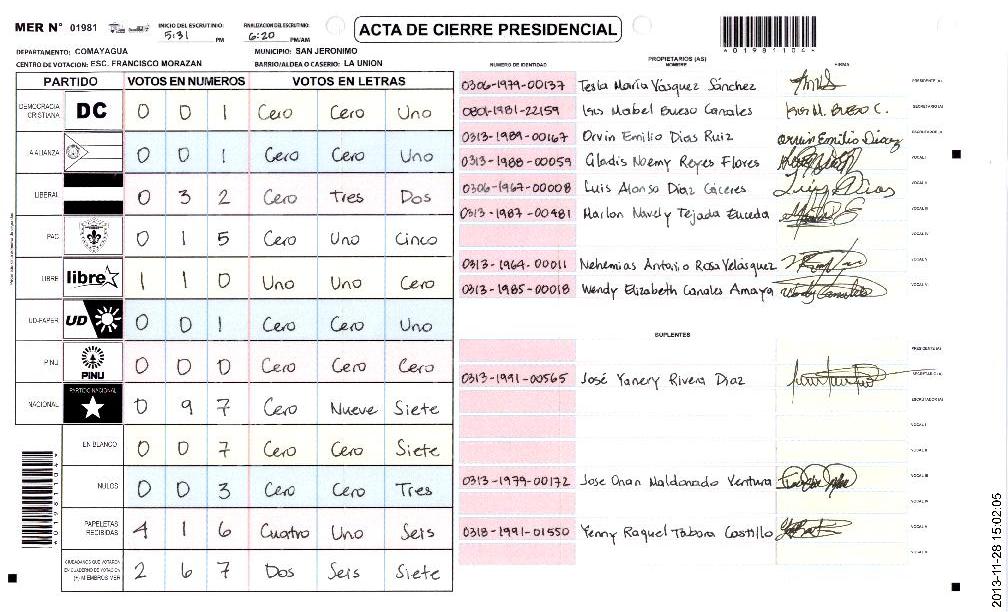 MER N° 01981
INICIO DEL ESCRUTINIO: 5:31 PM
FINALIZACION DEL ESCRUTINIO: 6:20 PM/AM
ACTA DE CIERRE PRESIDENCIAL
DEPARTAMENTO: COMAYAGUA
MUNICIPIO: SAN JERONIMO
CENTRO DE VOTACION: ESC. FRANCISCO MORAZAN
BARRIO/ALDEA O CASERIO: LA UNION
PARTIDO VOTOS EN NUMEROS VOTOS EN LETRAS
DEMOCRACIA CRISTIANA DC 0 0 1 Cero Cero Uno
LA ALIANZA 0 0 1 Cero Cero Uno
LIBERAL 0 3 2 Cero Tres Dos
PAC 0 1 5 Cero Uno Cinco
LIBRE libre 1 1 0 Uno Uno Cero
UD-FAPER UD 0 0 1 Cero Cero Uno
PINU PINU 0 0 0 Cero Cero Cero
NACIONAL PARTIDO NACIONAL 0 9 7 Cero Nueve Siete
EN BLANCO 0 0 7 Cero Cero Siete
NULOS 0 0 3 Cero Cero Tres
PAPELETAS RECIBIDAS 4 1 6 Cuatro Uno Seis
CIUDADANOS QUE VOTARON EN CUADERNO DE VOTACION (+) MIEMBROS MER 2 6 7 Dos Seis Siete
PROPIETARIOS (AS)
NUMERO DE IDENTIDAD NOMBRE FIRMA
0306-1979-00137 Tesla María Vásquez Sánchez PRESIDENTE (A)
0801-1981-22159 Isis Mabel Bueso Canales Isis M. Bueso C. SECRETARIO (A)
0313-1989-00167 Orvin Emilio Dias Ruiz Orvin Emilio Diaz ESCRUTADOR (A)
0313-1988-00059 Gladis Noemy Reyes Flores VOCAL I
0306-1967-00008 Luis Alonso Diaz Cáceres VOCAL II
0313-1987-00481 Marlon Navely Tejada Euceda VOCAL III
VOCAL IV
0313-1964-00011 Nehemias Antonio Rosa Velásquez VOCAL V
0313-1985-00018 Wendy Elizabeth Canales Amaya Wendy Canales VOCAL VI
SUPLENTES
PRESIDENTE (A)
0313-1991-00565 José Yanery Rivera Diaz SECRETARIO (A)
ESCRUTADOR (A)
VOCAL I
VOCAL II
0313-1979-00172 Jose Onan Maldonado Ventura VOCAL III
VOCAL IV
0318-1991-01550 Yenny Raquel Tabora Castillo VOCAL V
VOCAL VI
2013-11-28 15:02:05